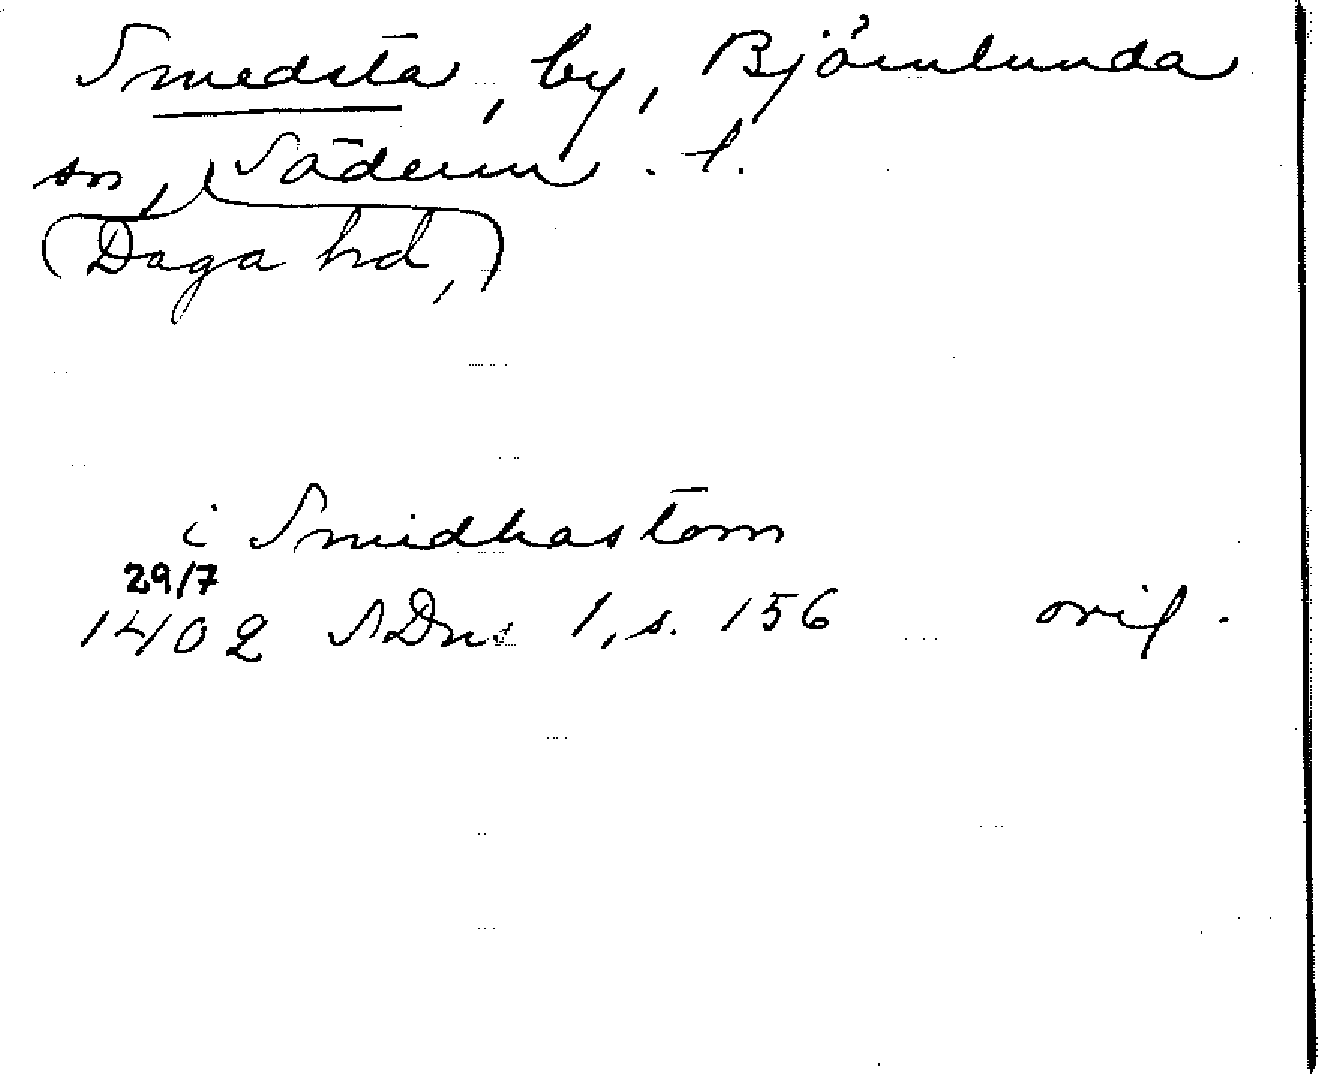 Smedsta, by, Björnlunda
sn, Söderm. l.
(Daga hd,)
i Smidhastom
29/7
1402 SDns 1, s. 156 orig.